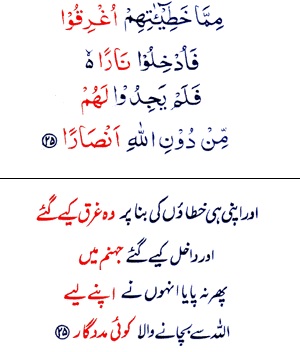 مِمَّا خَطِيْٓـٰٔتِهِمْ اُغْرِقُوْا
فَاُدْخِلُوْا نَارًا ۙ۬
فَلَمْ يَجِدُوْا لَهُمْ
مِّنْ دُوْنِ اللّٰهِ اَنْصَارًا ﴿۲۵﴾
اور اپنی ہی خطاؤں کی بنا پر وہ غرق کیے گئے
اور داخل کیے گئے جہنم میں
پھر نہ پایا انہوں نے اپنے لیے
اللہ سے بچانے والا کوئی مددگار ﴿۲۵﴾